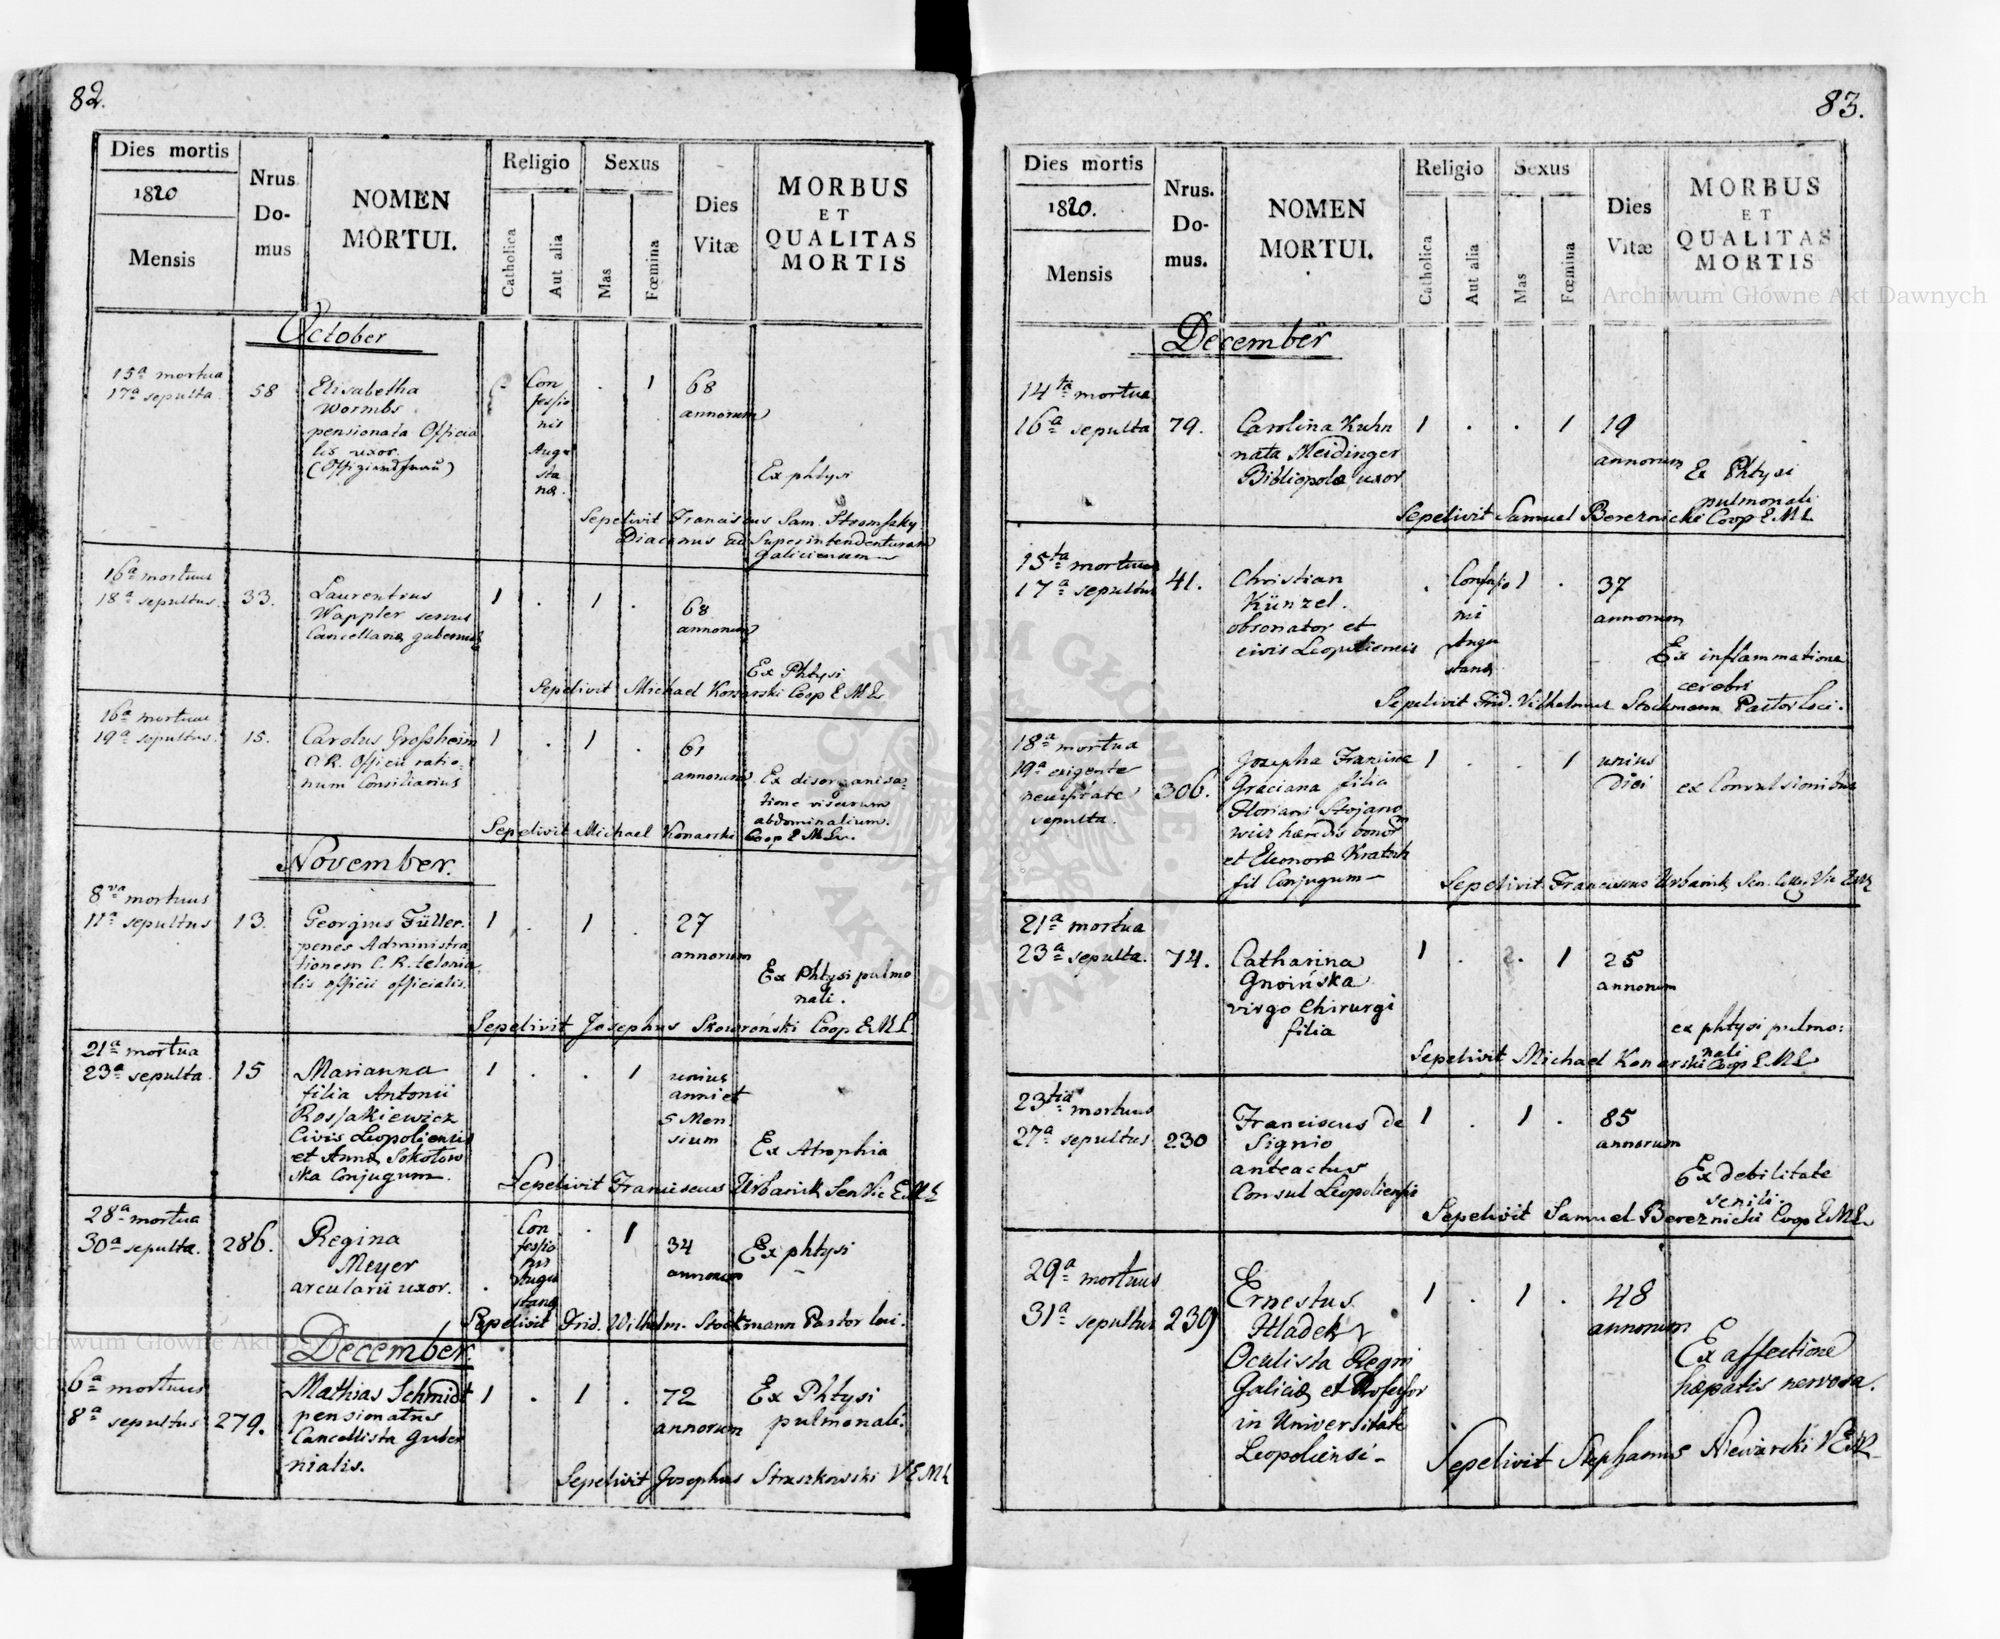 82.
Dies mortis
1820
Mensis
Nrus
Do-
mus
NOMEN
MORTUI.
Religio
Catholica
Aut alia
Sexus
Mas
Fœmina
Dies
Vitæ
MORBUS
ET
QUALITAS
MORTIS
October
15a mortua
17a sepulta
58
Elisabetha
Wormbs
pensionata Officia
lis uxor.
Con
fessio
nis
Augu
sta
næ.
.
1
68
annorum
Ex phtysi
Sepelivit Franciscus Sam. Stromszky
Diaconus ad Superintendenturam
Galiciensem
16a mortuus
18a sepultus
33.
Laurentius
Wappler servus
Cancellariæ gubernial
1 . 1 .
68
annorum
Ex Phtysi
Sepelivit Michael Konarski Coop E M L
16a mortuus
19a sepultus
15.
Carolus Grossheim
C. R. Officii ratio:
num Consiliarius
1 . 1 .
61
annorum
Ex disorganisa:
tione viscerum
abdominalium.
Sepelivit Michael Konarski Coop E M L.
November.
8va mortuus
11a sepultus
13.
Georgius Füller
penes Administra
tionem C. R. telonia
lis officii officialis.
1 . 1 .
27
annorum
Ex Phtysi pulmo
nali.
Sepelivit Josephus Skowroński Coop E M L.
21a mortua
23a sepulta
15
Marianna
filia Antonii
Rossakiewicz
Civis Leopoliensis
et Annæ Sokołow
ska Conjugum.
1 . . 1
unius
anni et
5 Men
sium
Ex Atrophia
Sepelivit Franciscus Urbanik Sen Vic E M L
28a mortua
30a sepulta.
286.
Regina
Meyer
arcularii uxor.
.
Con
fessio
nis
Augu
stanæ
. 1
34
annorum
Ex phtysi
Sepelivit Frid. Wilhelm. Stockmann Pastor loci.
December.
6a mortuus
8a sepultus
279.
Mathias Schmidt
pensionatus
Cancellista Guber
nialis.
1 . 1 .
72
annorum
Ex Phtysi
pulmonali.
Sepelivit Josephus Straszkowski V E M L
83.
Dies mortis
1820.
Mensis
Nrus.
Do-
mus.
NOMEN
MORTUI.
Religio
Catholica
Aut alia
Sexus
Mas
Fœmina
Dies
Vitæ
MORBUS
ET
QUALITAS
MORTIS
Archiwum Główne Akt Dawnych
December
14ta mortua
16a sepulta
79.
Carolina Kuhn
nata Meidinger
Bibliopolæ uxor
1 . . 1
19
annorum
Ex Phtysi
pulmonali
Sepelivit Samuel Bereznicki Coop E M L
15ta mortuus
17a sepultus
41.
Christian
Künzel.
obsonator et
civis Leopoliensis
.
Confessio
nis
Augu
stanæ
1 .
37
annorum
Ex inflammatione
cerebri
Sepelivit Frid. Vilhelmus Stockmann Pastor Loci.
18a mortua
19a exigente
necessitate
sepulta.
306.
Josepha Francisca
Graciana filia
Floriani Stojano
wicz hæredis bonor
et Eleonoræ Kratoch
fil Conjugum
1 . . 1
unius
Diei
ex Convulsionibus
Sepelivit Franciscus Urbanik Sen.
21a mortua
23a sepulta.
74.
Catharina
Gnoińska
virgo Chirurgi
filia
1 . . 1
25
annorum
ex phtysi pulmo:
nali
Sepelivit Michael Konarski Coop E M L
23tia mortuus
27a sepultus
230
Franciscus de
Signio
anteactus
Consul Leopoliensis
1 . 1 .
85
annorum
Ex debilitate
senili.
Sepelivit Samuel Bereznicki Coop E M L
29a mortuus
31a sepultus
239
Ernestus
Hladek
Oculista Regni
Galiciæ et Professor
in Universitate
Leopoliensi
1 . 1 .
48
annorum
Ex affectione
hæpatis nervosa.
Sepelivit Stephanus Niewiarski V E M L
Archiwum Główne Akt Dawnych
ARCHIWUM GŁÓWNE
AKT DAWNYCH